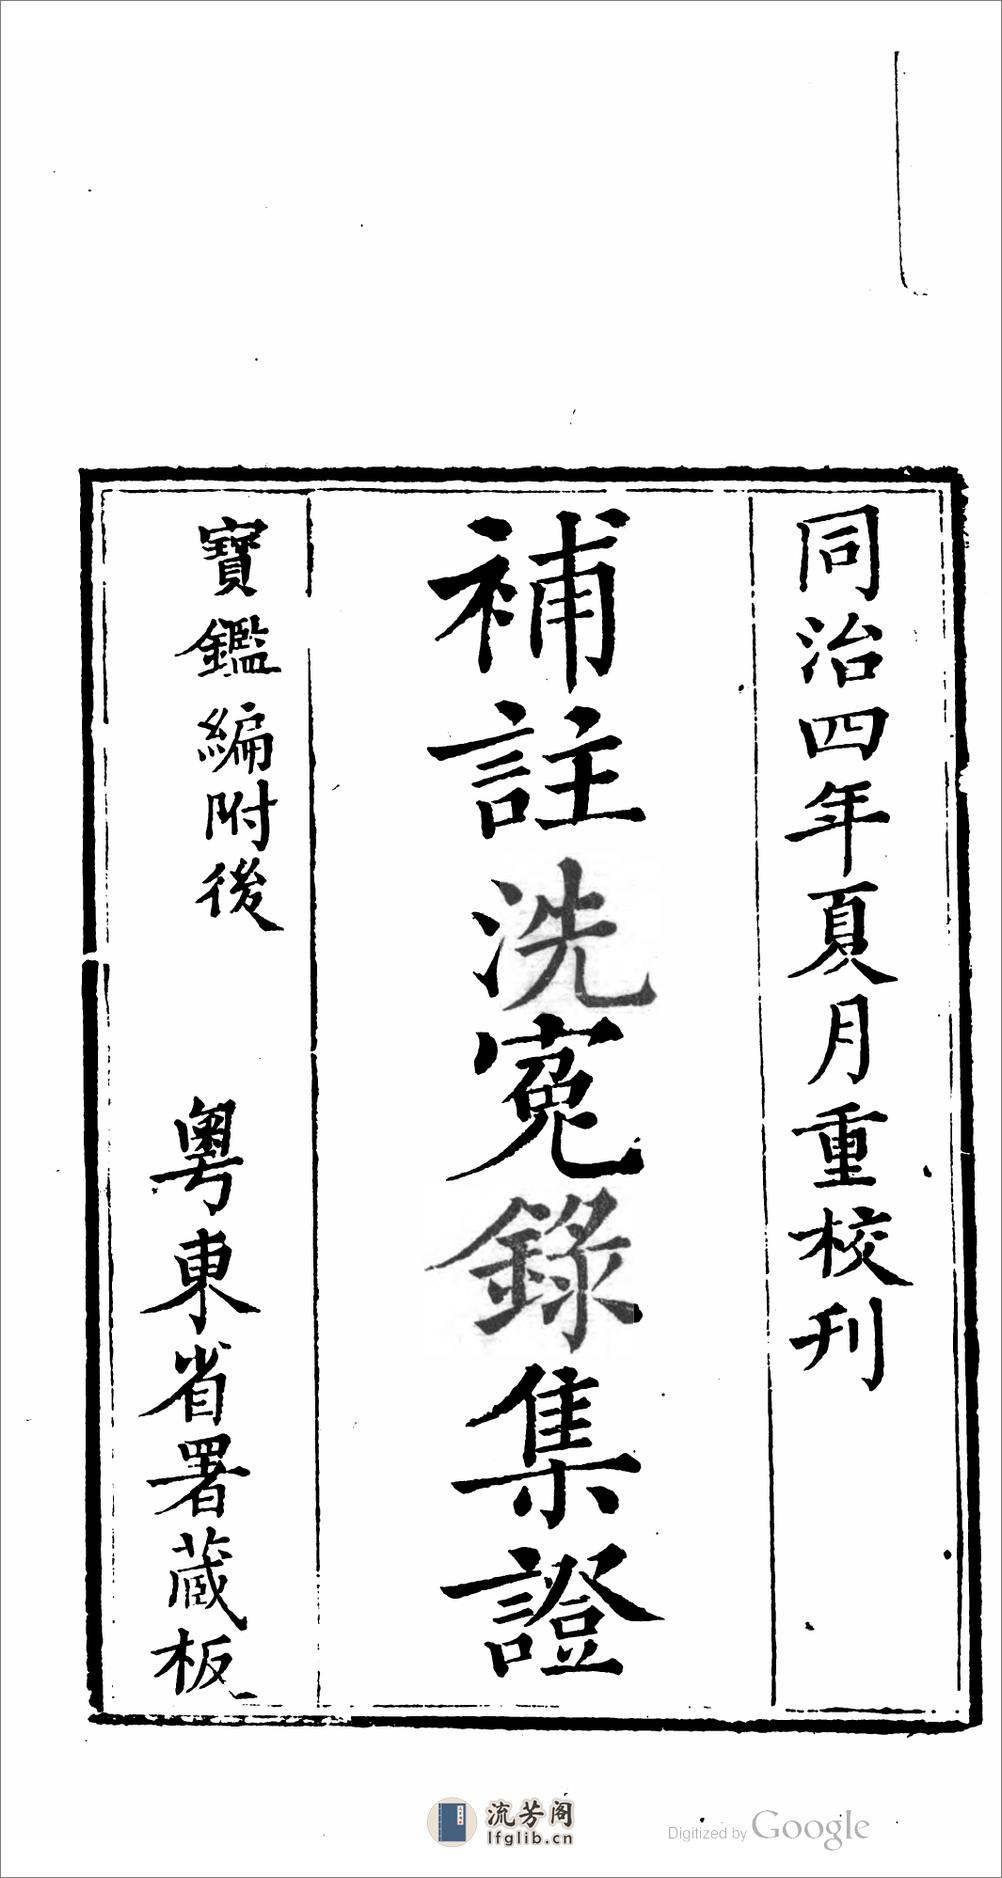 同治四年夏月重校刊
補註洗冤錄集證
寶鑑編附後
粵東省署藏板
流芳阁
lfglib.cn
Digitized by Google